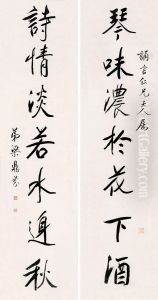 琴味濃於花下酒
誦言仁兄大人屬
詩情淡若水邊秋
弟梁鼎芬